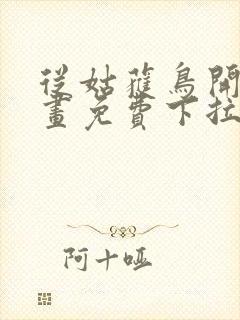 從姑蘿鳥開
畫免費下拉
阿十啞